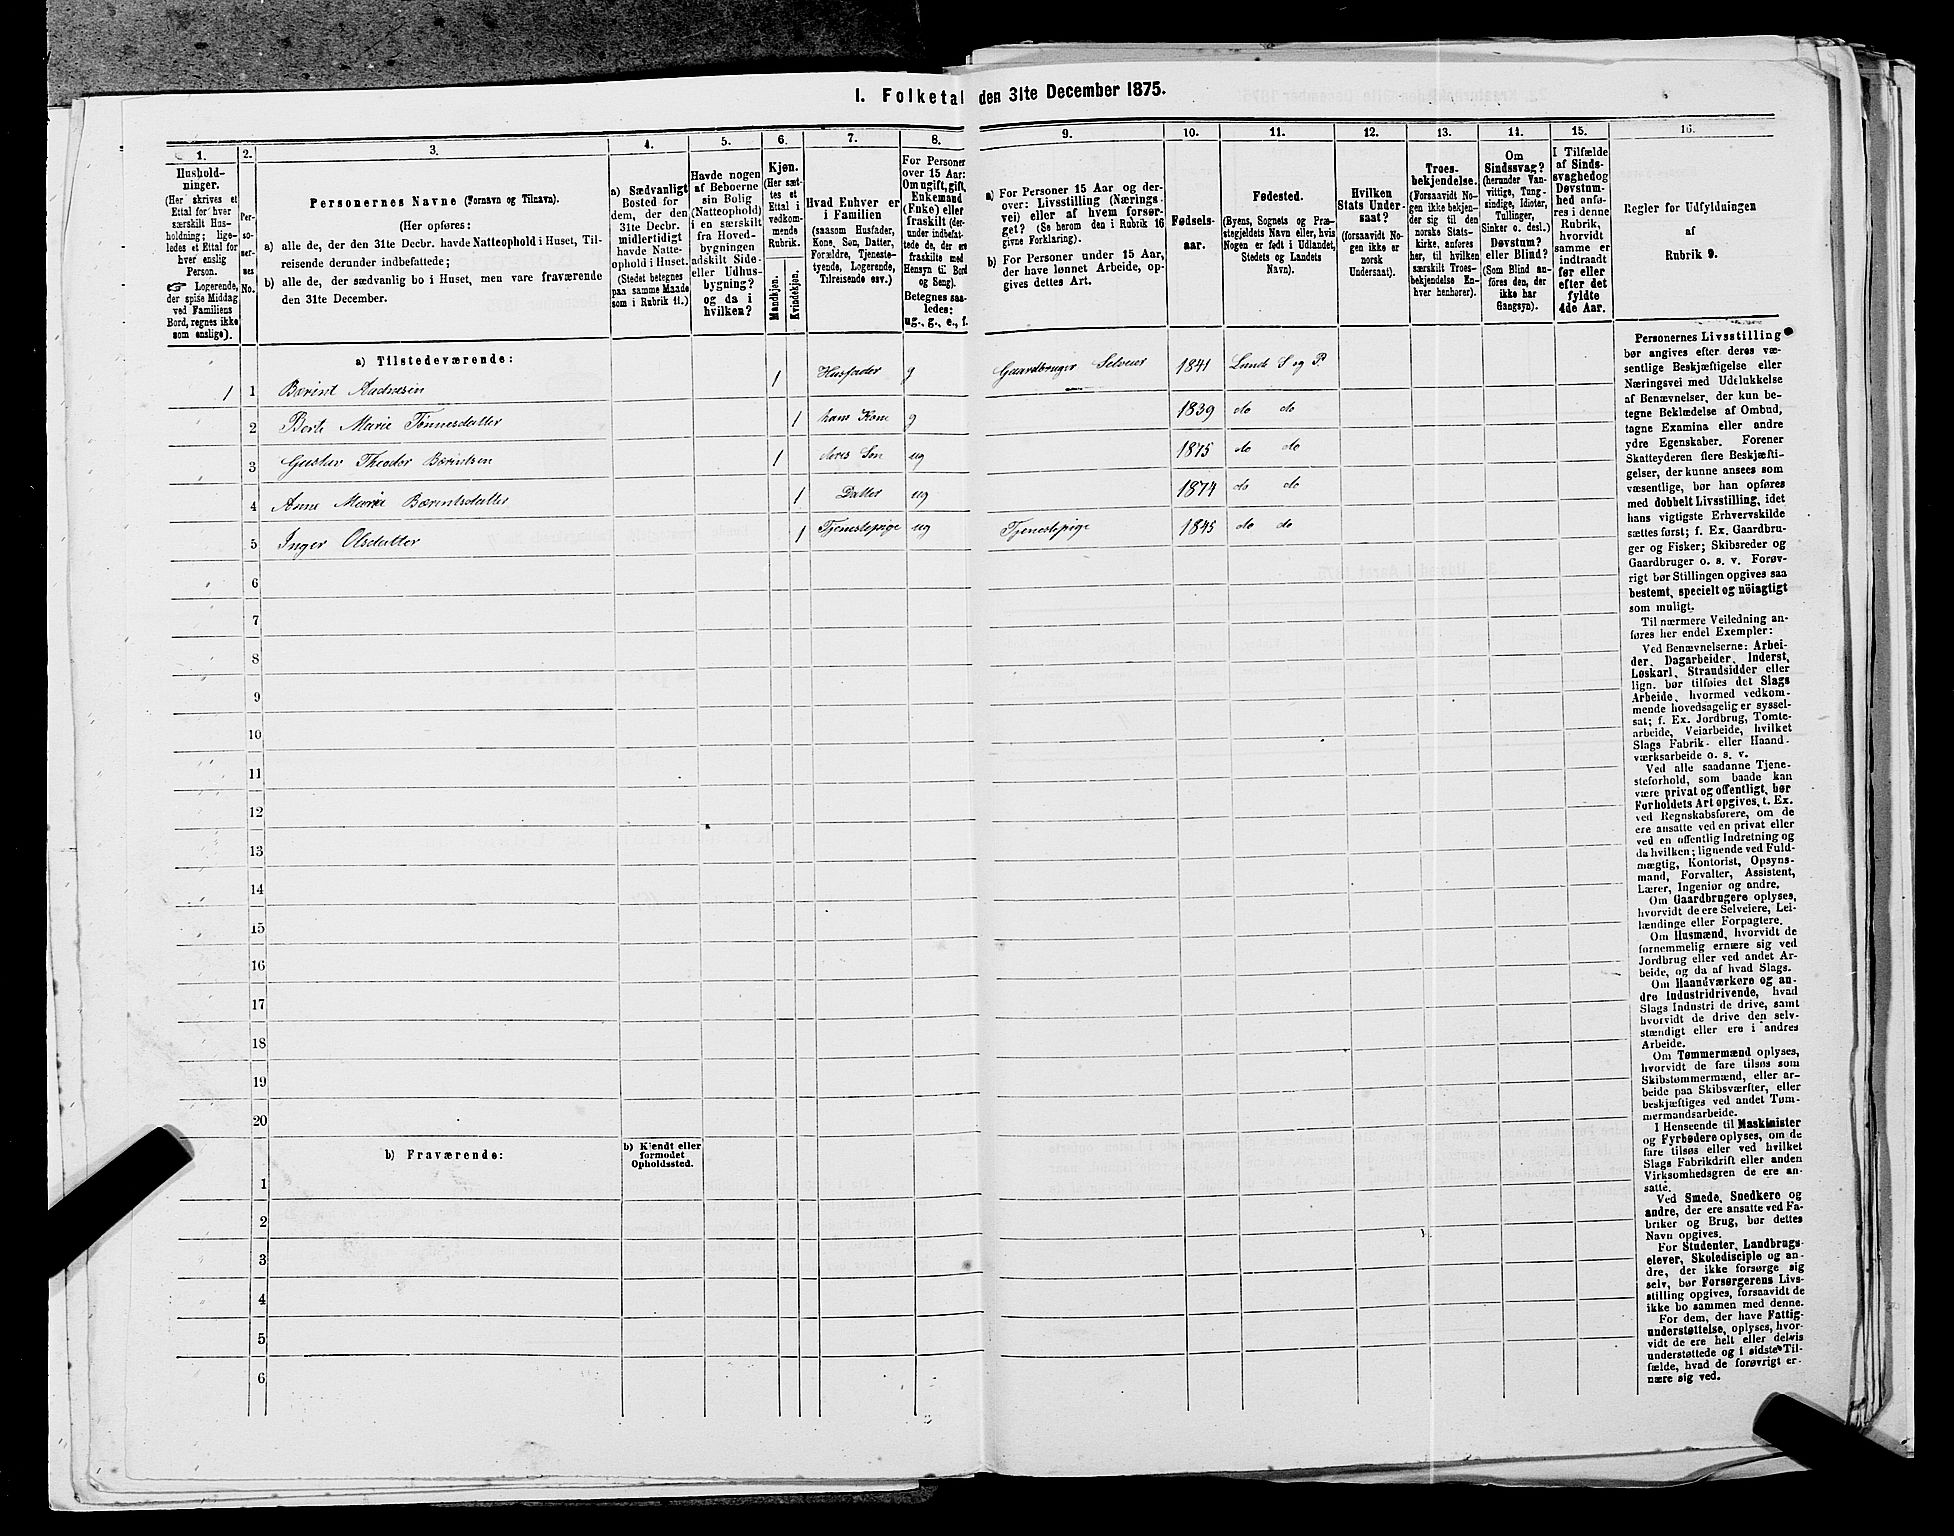 I. Folketal den 31te December 1875.
1.
2.
3.
4.
5.
6.
7.
8.
9.
10.
11.
12.
13.
14.
15.
16.
Hushold-
ninger.
(Her skrives et
Ettal for hver
særskilt Hus-
holdning; lige-
ledes et Ettal for
hver enslig
Person.
☞ Logerende,
der spise Middag
ved Familiens
Bord, regnes ikke
som enslige).
Per-
so-
ner-
nes
No.
Personernes Navne (Fornavn og Tilnavn).
(Her opføres:
a) alle de, der den 31te Decbr. havde Natteophold i Huset, Til-
reisende derunder indbefattede;
b) alle de, der sædvanlig bo i Huset, men vare fraværende
den 31te December.
a) Sædvanligt
Bosted for
dem, der den
31te Decbr.
midlertidigt
havde Natte-
ophold i Huset.
(Stedet betegnes
paa samme Maade
som i Rubrik 11.)
Havde nogen
af Beboerne
sin Bolig
(Natteophold)
i en særskilt
fra Hoved-
bygningen
adskilt Side-
eller Udhus-
bygning?
og da i
hvilken?
Kjøn.
(Her sæt-
tes et
Ettal i
vedkom-
mende
Rubrik.
Mandkjøn.
Kvindekjøn.)
Hvad Enhver er
i Familien
(saasom Husfader,
Kone, Søn, Datter,
Forældre, Tjeneste-
tyende, Logerende,
Tilreisende osv.)
For Personer
over 15 Aar:
Om ugift, gift,
Enkemand
(Enke) eller
fraskilt (der-
under indbefat-
tede de, der ere
fraskilte med
Hensyn til Bord
og Seng).
Betegnes saa-
ledes:
ug., g., e., f.
a) For Personer 15 Aar og der-
over: Livsstilling (Nærings-
vei) eller af hvem forsør-
get? (Se herom den i Rubrik 16
givne Forklaring).
b) For Personer under 15 Aar,
der have lønnet Arbeide, op-
gives dettes Art.
Fødsels-
aar.
Fødested.
(Byens, Sognets og Præ-
stegjeldets Navn eller, hvis
Nogen er født i Udlandet,
Stedets og Landets
Navn).
Hvilken
Stats Under-
saat?
(forsaavidt No-
gen ikke er
norsk
Undersaat).
Troes-
bekjendelse.
(Forsaavidt No-
gen ikke bekjen-
der sig til den
norske Stats-
kirke, anføres
her, til hvilken
særskilt Troes-
bekjendelse En-
hver henhører).
Om
Sindssvag?
(herunder Van-
vittige, Tung-
sindige, Idioter,
Tullinger,
Sinker o. desl.)
Døvstum?
eller Blind?
(Som Blind an-
føres den, der
ikke har
Gangsyn).
I Tilfælde
af Sinds-
svaghed og
Døvstum-
hed anfø-
res i denne
Rubrik,
hvorvidt
samme er
indtraadt
før eller
efter det
fyldte
4de Aar.
Regler for Udfyldningen
af
Rubrik 9.
a) Tilstedeværende:
1 1 Børint Andresen 1 Husfader g Gaardbruger Selveier 1841 Lunds S og P.
2 Berte Marie Tønnesdatter 1 hans Kone g 1839 do do
3 Gustav Theodor Børintsen 1 deres Søn ug 1875 do do
4 Anne Marie Børintsdatter 1 Datter ug 1874 do do
5 Inger Olsdatter 1 Tjenestepige ug Tjenestepige 1845 do do
6
7
8
9
10
11
12
13
14
15
16
17
18
19
20
b) Fraværende:
b) Kjendt eller
formodet
Opholdssted.
1
2
3
4
5
6
Personernes Livsstilling
bør angives efter deres væ-
sentlige Beskjæftigelse eller
Næringsvei med Udelukkelse
af Benævnelser, der kun be-
tegne Beklædelse af Ombud,
tagne Examina eller andre
ydre Egenskaber. Forener
Skatteyderen flere Beskjæfti-
gelser, der kunne ansees som
væsentlige, bør han opføres
med dobbelt Livsstilling, idet
hans vigtigste Erhvervskilde
sættes først; f. Ex. Gaardbru-
ger og Fisker; Skibsreder og
Gaardbruger o. s. v. Forøv-
rigt bør Stillingen opgives saa
bestemt, specielt og nöiagtigt
som muligt.
Til nærmere Veiledning an-
føres her endel Exempler:
Ved Benævnelserne: Arbei-
der, Dagarbeider, Inderst,
Løskarl, Strandsidder eller
lign. bør tilføies det Slags
Arbeide, hvormed vedkom-
mende hovedsagelig er syssel-
sat; f. Ex. Jordbrug, Tomte-
arbeide, Veiarbeide, hvilket
Slags Fabrik- eller Haand-
værksarbeide o. s. v.
Ved alle saadanne Tjene-
steforhold, som baade kan
være privat og offentligt, bør
Forholdets Art opgives, t. Ex.
ved Regnskabsførere, om de
ere ansatte ved en privat eller
ved en offentlig Indretning og
da hvilken; lignende ved Fuld-
mægtig, Kontorist, Opsyns-
mand, Forvalter, Assistent,
Lærer, Ingeniør og andre.
Om Gaardbrugere oplyses,
hvorvidt de ere Selveiere, Lei-
lændinge eller Forpagtere.
Om Husmænd, hvorvidt de
fornemmelig ernære sig ved
Jordbrug eller ved andet Ar-
beide, og da af hvad Slags.
Om Haandværkere og an-
dre Industridrivende, hvad
Slags Industri de drive, samt
hvorvidt de drive den selv-
stændigt eller ere i andres
Arbeide.
Om Tømmermænd oplyses,
hvorvidt de fare tilsøs som
Skibstømmermænd, eller ar-
beide paa Skibsværfter, eller
beskjæftiges ved andet Tøm-
mermandsarbeide.
I Henseende til Maskinister
og Fyrbødere oplyses, om de
fare tilsøs eller ved hvilket
Slags Fabrikdrift eller anden
Virksomhedsgren de ere an-
satte.
Ved Smede, Snedkere og
andre, der ere ansatte ved Fa-
briker og Brug, bør dettes
Navn opgives.
For Studenter, Landbrugs-
elever, Skoledisciple og an-
dre, der ikke forsørge sig
selv, bør Forsørgerens Livs-
stilling opgives, forsaavidt de
ikke bo sammen med denne.
For dem, der have Fattig-
understøttelse, oplyses, hvor-
vidt de ere helt eller delvis
understøttede og i sidste Til-
fælde, hvad de forøvrigt er-
nære sig ved.